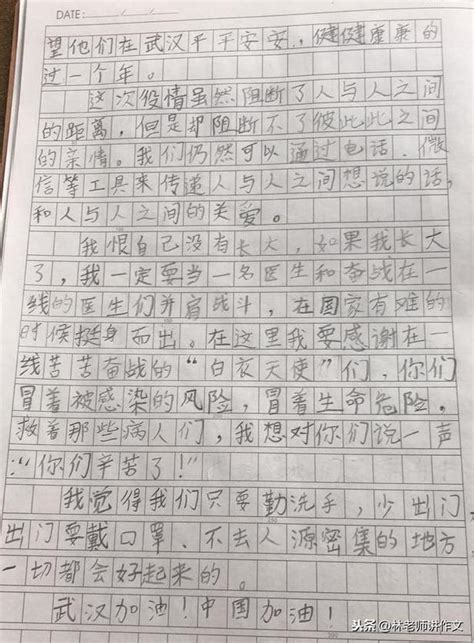 DATE: / /
望他们在武汉平平安安，健健康康的
过一个年。
这次役情虽然阻断了人与人之间
的距离，但是却阻断不了彼此此之间
的亲情。我们仍然可以通过电话、微
信等工具来传递人与人之间想说的话，
和人与人之间的关爱。
我恨自己没有长大，如果我长大
了，我一定要当一名医生和奋战在一
线的医生们并肩战斗，在国家有难的
时候挺身而出。在这里我要感谢在一
线苦苦奋战的“白衣天使”们，你们
冒着被感染的风险，冒着生命危险，
救着那些病人们，我想对你们说一声
：“你们辛苦了！”
我觉得我们只要勤洗手，少出门
出门要戴口罩、不去人源密集的地方
一切都会好起来的。
武汉加油！中国加油！
头条@林老师讲作文